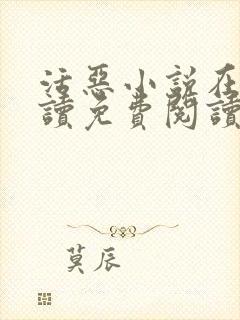 活惡小說在
讀免費閱讀
莫辰